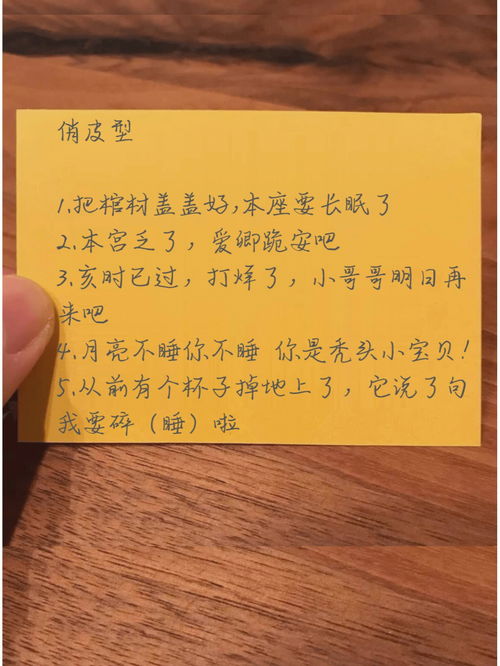 俏皮型
1.把棺材盖盖好,本座要长眠了
2.本宫乏了，爱卿跪安吧
3.亥时已过，打烊了，小哥哥明日再
来吧
4.月亮不睡你不睡 你是秃头小宝贝!
5.从前有个杯子掉地上了，它说了句
我要碎（睡）啦